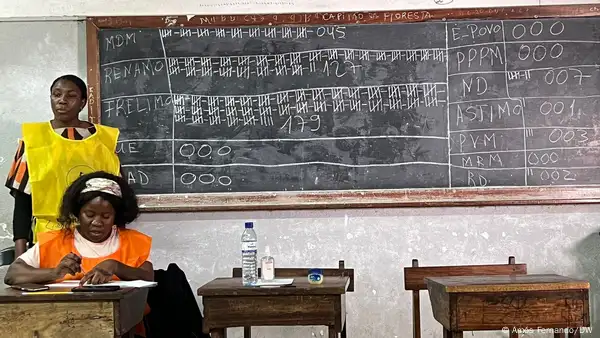 MDM 045
RENAMO 127
FRELIMO 179
UE 000
AD 000
E-POVO 000
PPPM 000
ND 007
ASTIMO 001
PVM 003
MRM 000
RD 002
© Amós Fernando/DW